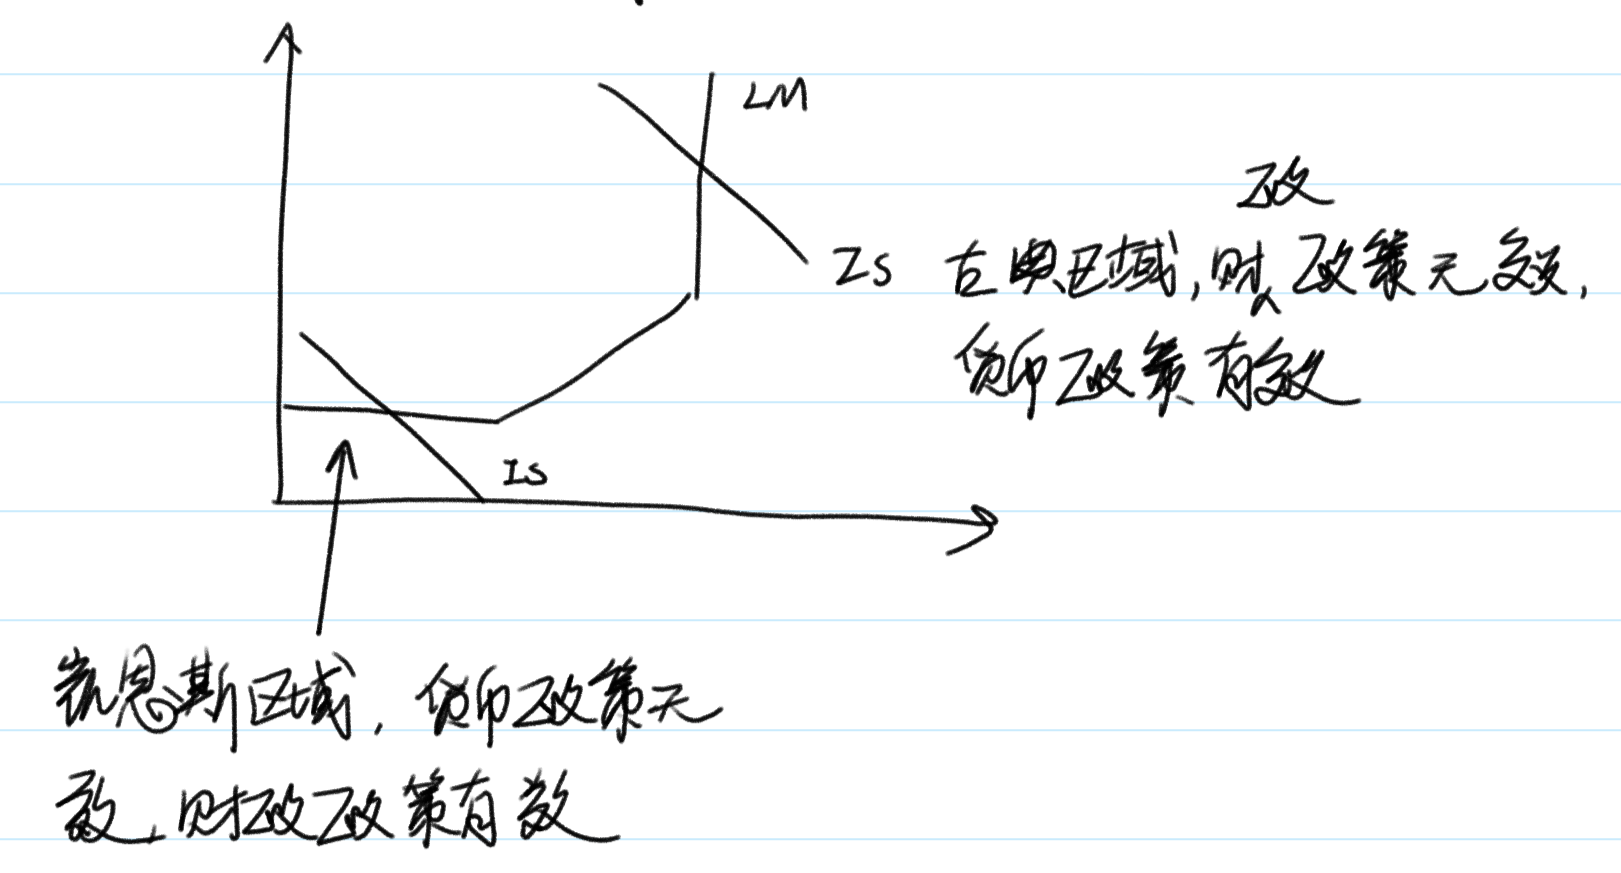 LM
政
IS 古典区域,财政政策无效,
货币政策有效
IS
凯恩斯区域,货币政策无
效,财政政策有效